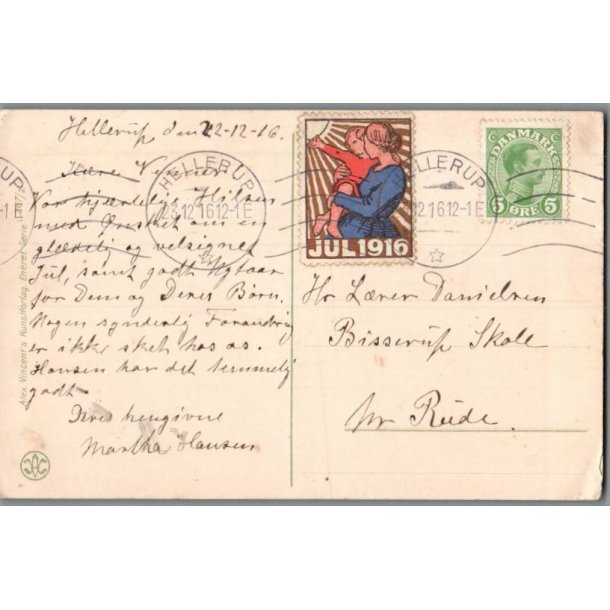 Hellerup den 22-12-16.
Kære Venner
Vor hjærtelig Hilsen
med Ønsket om en
glædelig og velsignet
Jul, samt godt Nytaar
for Dem og Deres Børn.
Nogen synderlig Forandring
er ikke sket hos os.
Hansen har det temmelig
godt
Deres hengivne
Martha Hansen
HELLERUP
23.12.16.12-1E
JUL 1916
HELLERUP
12.16.12-1E
DANMARK
5 ØRE 5
Hr Lærer Danielsen
Bisserup Skole
pr Rude.
Alex. Vincent's Kunstforlag, Eneret Serie